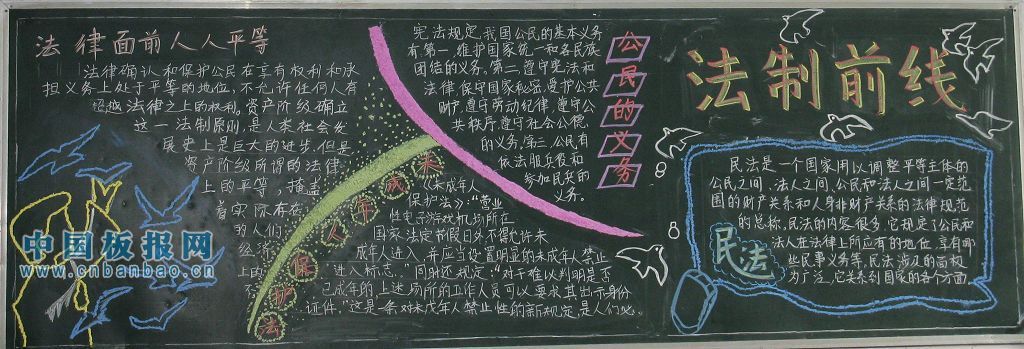 法律面前人人平等
法律确认和保护公民在享有权利和承
担义务上处于平等的地位,不允许任何人有
超越法律之上的权利。资产阶级确立
这一法制原则,是人类社会发
展史上是巨大的进步。但是
资产阶级所谓的法律
上的平等,掩盖
着实际存在
的人们
经济
上的
不
中国板报网
www.cnbanbao.cn
宪法规定,我国公民的基本义务
有第一,维护国家统一和各民族
团结的义务。第二,遵守宪法和
法律,保守国家秘密,爱护公共
财产,遵守劳动纪律,遵守公
共秩序,遵守社会公德
的义务。第三,公民有
依法服兵役和
参加民兵的
义务。
公民的义务
未成年人保护法
《未成年人
保护法》:“营业
性电子游戏机场所在
国家法定节假日外不得允许未
成年人进入,并应当设置明显的未成年人禁止
进入标志。”同时还规定:“对于难以判明是否
已成年的,上述场所的工作人员可以要求其出示身份
证件。”这是一条对未成年人禁止性的新规定,是人们必
法制前线
民法是一个国家用以调整平等主体的
公民之间、法人之间、公民和法人之间一定范
围的财产关系和人身非财产关系的法律规范
的总称。民法的内容很多,它规定了公民和
法人在法律上所应有的地位,享有哪
些民事义务等,民法涉及的面极
为广泛,它关系到国家的各个方面
民法